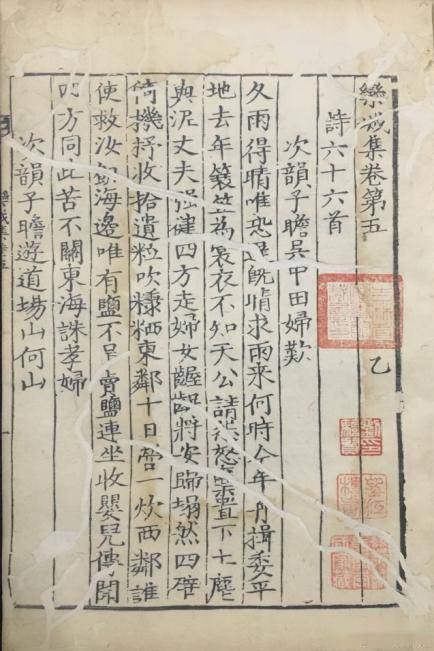 欒城集卷第五 乙
詩六十六首
次韻子瞻吳中田婦歎
久雨得晴唯恐遲既晴求雨来何時今年舟楫委平
地去年簑笠為裳衣不知天公怒棄置下土塵
與泥丈夫强健四方走婦女齷齪將安歸塌然四壁
倚機杼收拾遺粒吹糠粞東鄰十日營一炊西鄰誰
使救汝飢海邊唯有鹽不旱賣鹽連坐收嬰兒傳聞
四方同此苦不關東海誅孝婦
次韻子瞻遊道場山何山